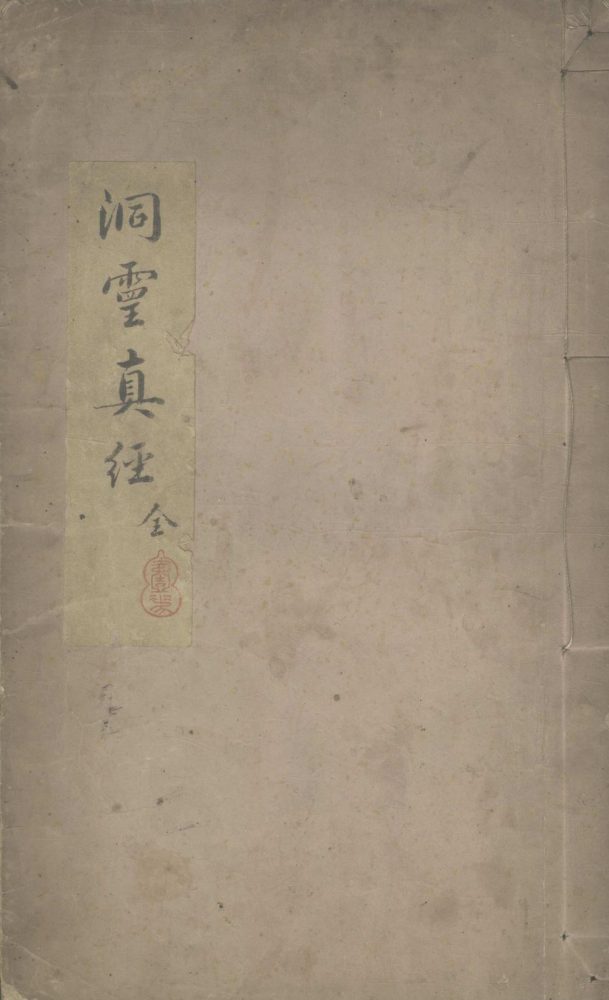 洞霊真経
全